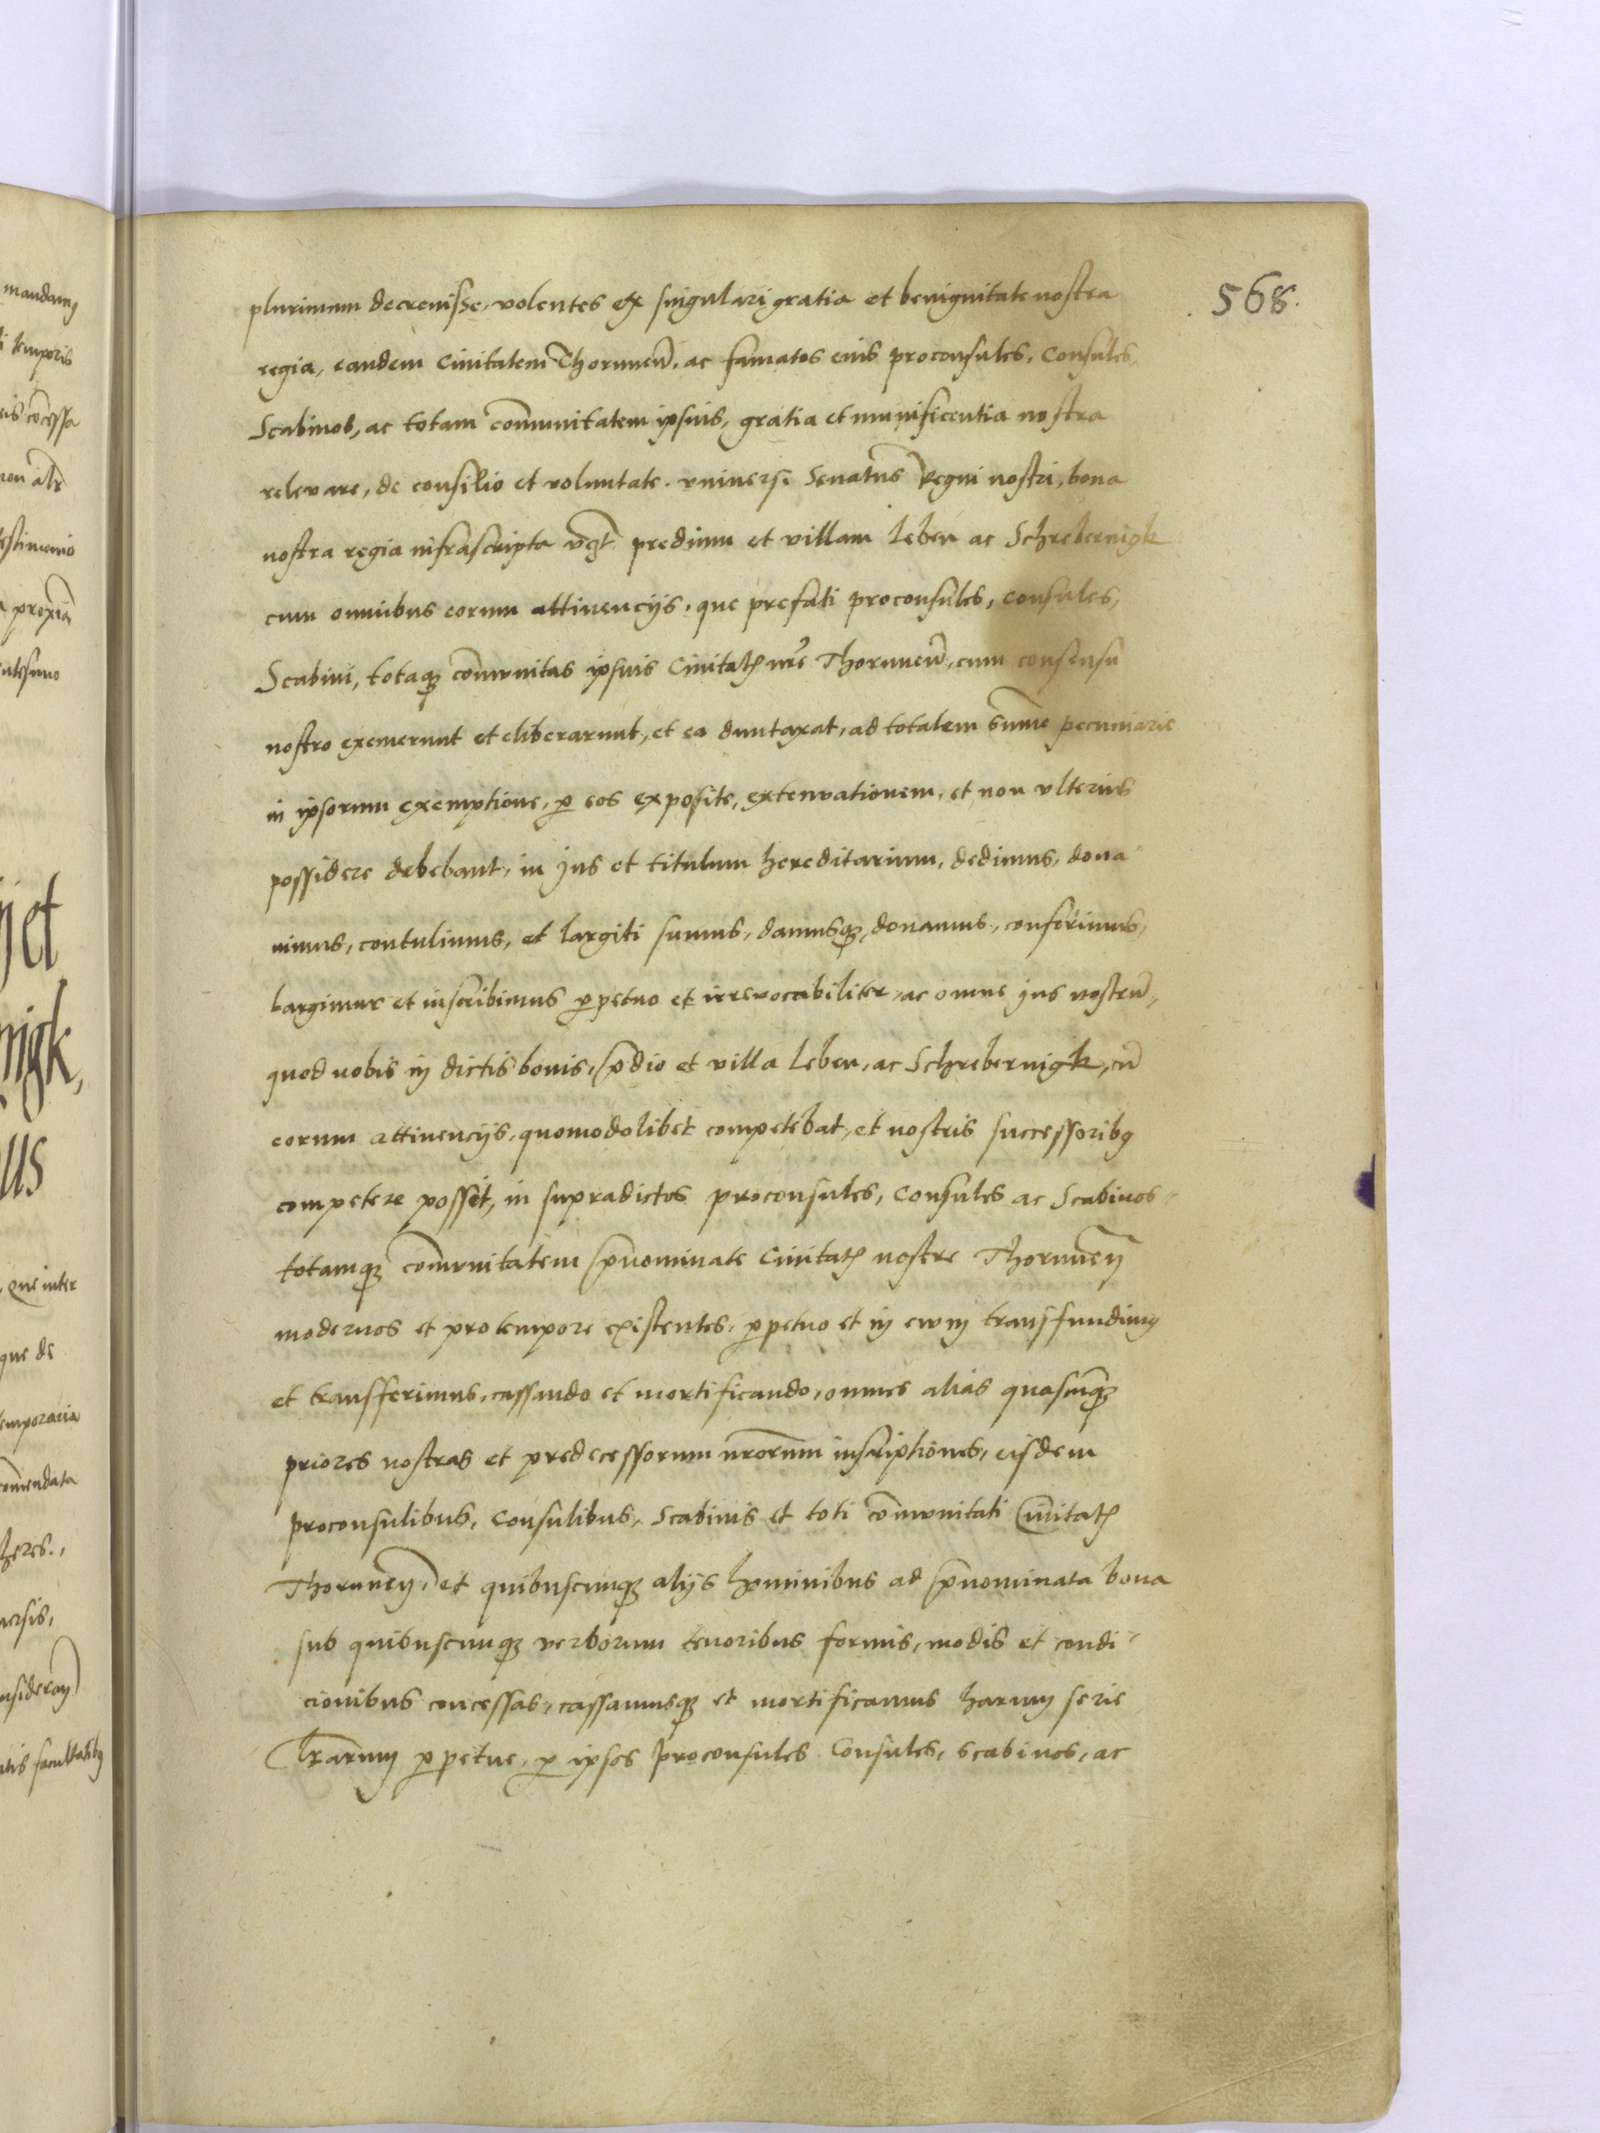 568.
plurimum decrevisse, volentes ex singulari gratia et benignitate nostra
regia, eandem Civitatem Thorunen̄, ac famatos eius proconsules, Consules,
Scabinos, ac totam com̄unitatem ipsius, gratia et munificentia nostra
relevare, de consilio et voluntate universi Senatus Regni nostri, bona
nostra regia infrascripta vꝫt predium et villam Leben ac Schrebernigk
cum omnibus eorum attinencijs, que prefati proconsules, consules,
Scabini, totaqꝫ com̄unitas ipsius Civitatꝭ nr̄e Thorunen̄, cum consensu
nostro exemerunt et eliberarunt, et ea duntaxat, ad totalem sum̄e pecuniarie
in ipsorum exemptione, ꝑ eos exposite, extenuationem, et non ulterius
possidere debebant, in jus et titulum hereditarium, dedimus, dona-
vimus, contulimus, et largiti sumus, damusqꝫ, donamus, conferimus,
largimur et inscribimus ꝑpetuo et irrevocabiliter, ac omne jus nostrū,
quod nobis in dictis bonis, p̄dio et villa Leben, ac Schrebernigk, cū
eorum attinencijs, quomodolibet competebat, et nostris successoribꝫ
competere posset, in supradictos proconsules, Consules ac Scabinos
totamqꝫ com̄unitatem p̄nominate Civitatꝭ nostre Thorunen̄
modernos et pro tempore existentes, ꝑpetuo et in evum transfundimꝰ
et transferimus, cassando et mortificando, omnes alias quascūqꝫ
priores nostras et predecessorum nr̄orum inscriptiones, eisdem
proconsulibus, Consulibus, Scabinis et toti com̄unitati Civitatꝭ
Thorunen̄, et quibuscunqꝫ alijs hominibus ad p̄nominata bona
sub quibuscunqꝫ verborum tenoribus formis, modis et condi-
cionibus concessas, cassamusqꝫ et mortificamus harum serie
lr̄arum ꝑpetue, ꝑ ipsos proconsules Consules, scabinos, ac